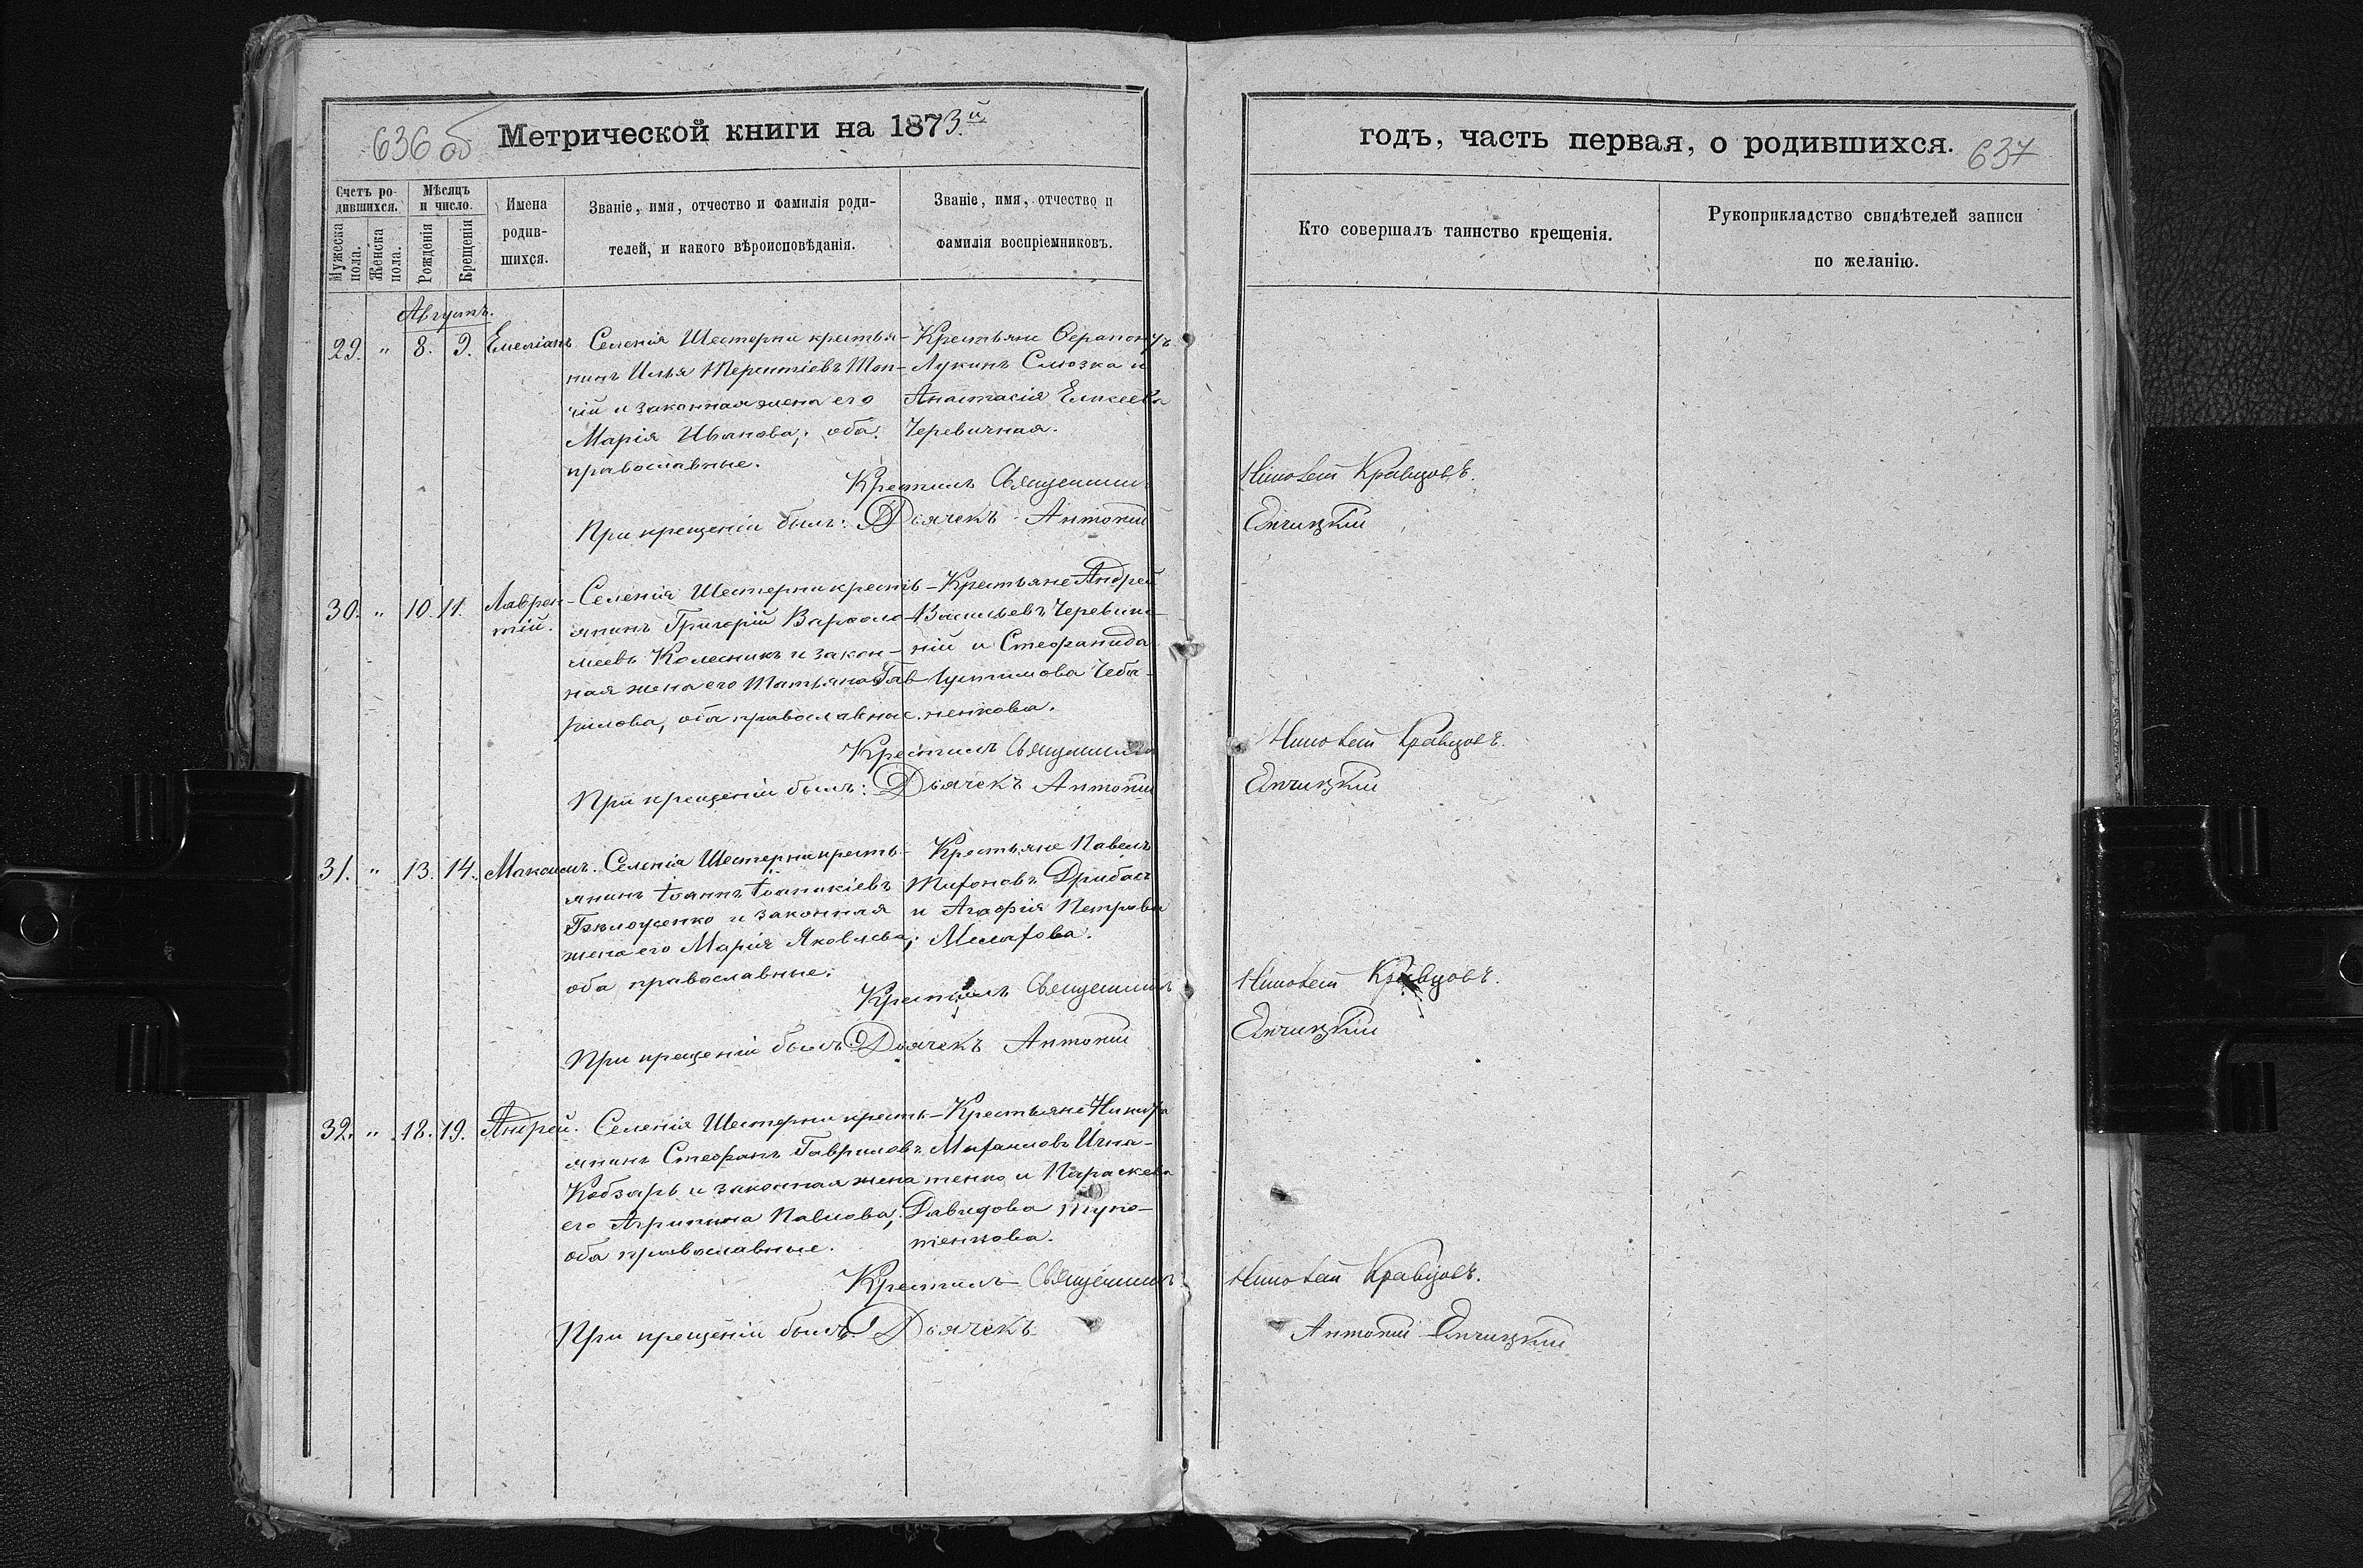 636 об Метрической книги на 1873й
Счетъ родившихся. Мѣсяцъ и число. Имена родившихся. Званіе, имя, отчество и фамилія родителей, и какого вѣроисповѣданія. Званіе, имя, отчество и фамилія воспріемниковъ.
Мужеска пола. Женска пола. Рожденія Крещенія
Августъ.
29. " 8. 9. Емеліанъ
Селенія Шестерни крестья-
нинъ Илья Терентіевъ
и законная жена его
Марія Иванова, оба
православные.
Крестьяне Ѳерапонтъ
Лукинъ Слюзка и
Анастасія Елисеева
Черевичная.
Крестилъ Священникъ
При крещеніи былъ: Дьячекъ Антоній
30. " 10. 11. Лаврен-
тій.
Селенія Шестерни кресть-
янинъ Григорій Варѳоло-
меевъ Колесникъ и закон-
ная жена его Татьяна Гав-
рилова, оба православные.
Крестьяне Андрей
Васильевъ Черевич-
ній и Стефанида
Іустинова Чеба-
ненкова.
Крестилъ Священникъ
При крещеніи былъ: Дьячекъ Антоній
31. " 13. 14. Максимъ.
Селенія Шестерни кресть-
янинъ Іоаннъ Іоаникіевъ
и законная
жена его Марія Яковлева,
оба православные.
Крестьяне Павелъ
Тихоновъ Дрибасъ
и Агафія Петрова
Крестилъ Священникъ
При крещеніи былъ Дьячекъ Антоній
32. " 18. 19. Андрей.
Селенія Шестерни кресть-
янинъ Стефанъ Гавриловъ
Кобзарь и законная жена
его Агрипина Павлова,
оба православные.
Крестьяне Никифоръ
Михаиловъ Игна-
тенко и Параскева
Давидова
Крестилъ Священникъ
При крещеніи былъ Дьячекъ
годъ, часть первая, о родившихся. 637
Кто совершалъ таинство крещенія.
Рукоприкладство свидѣтелей записи
по желанію.
Кравцовъ.
Кравцовъ.
Кравцовъ.
Кравцовъ.
Антоній